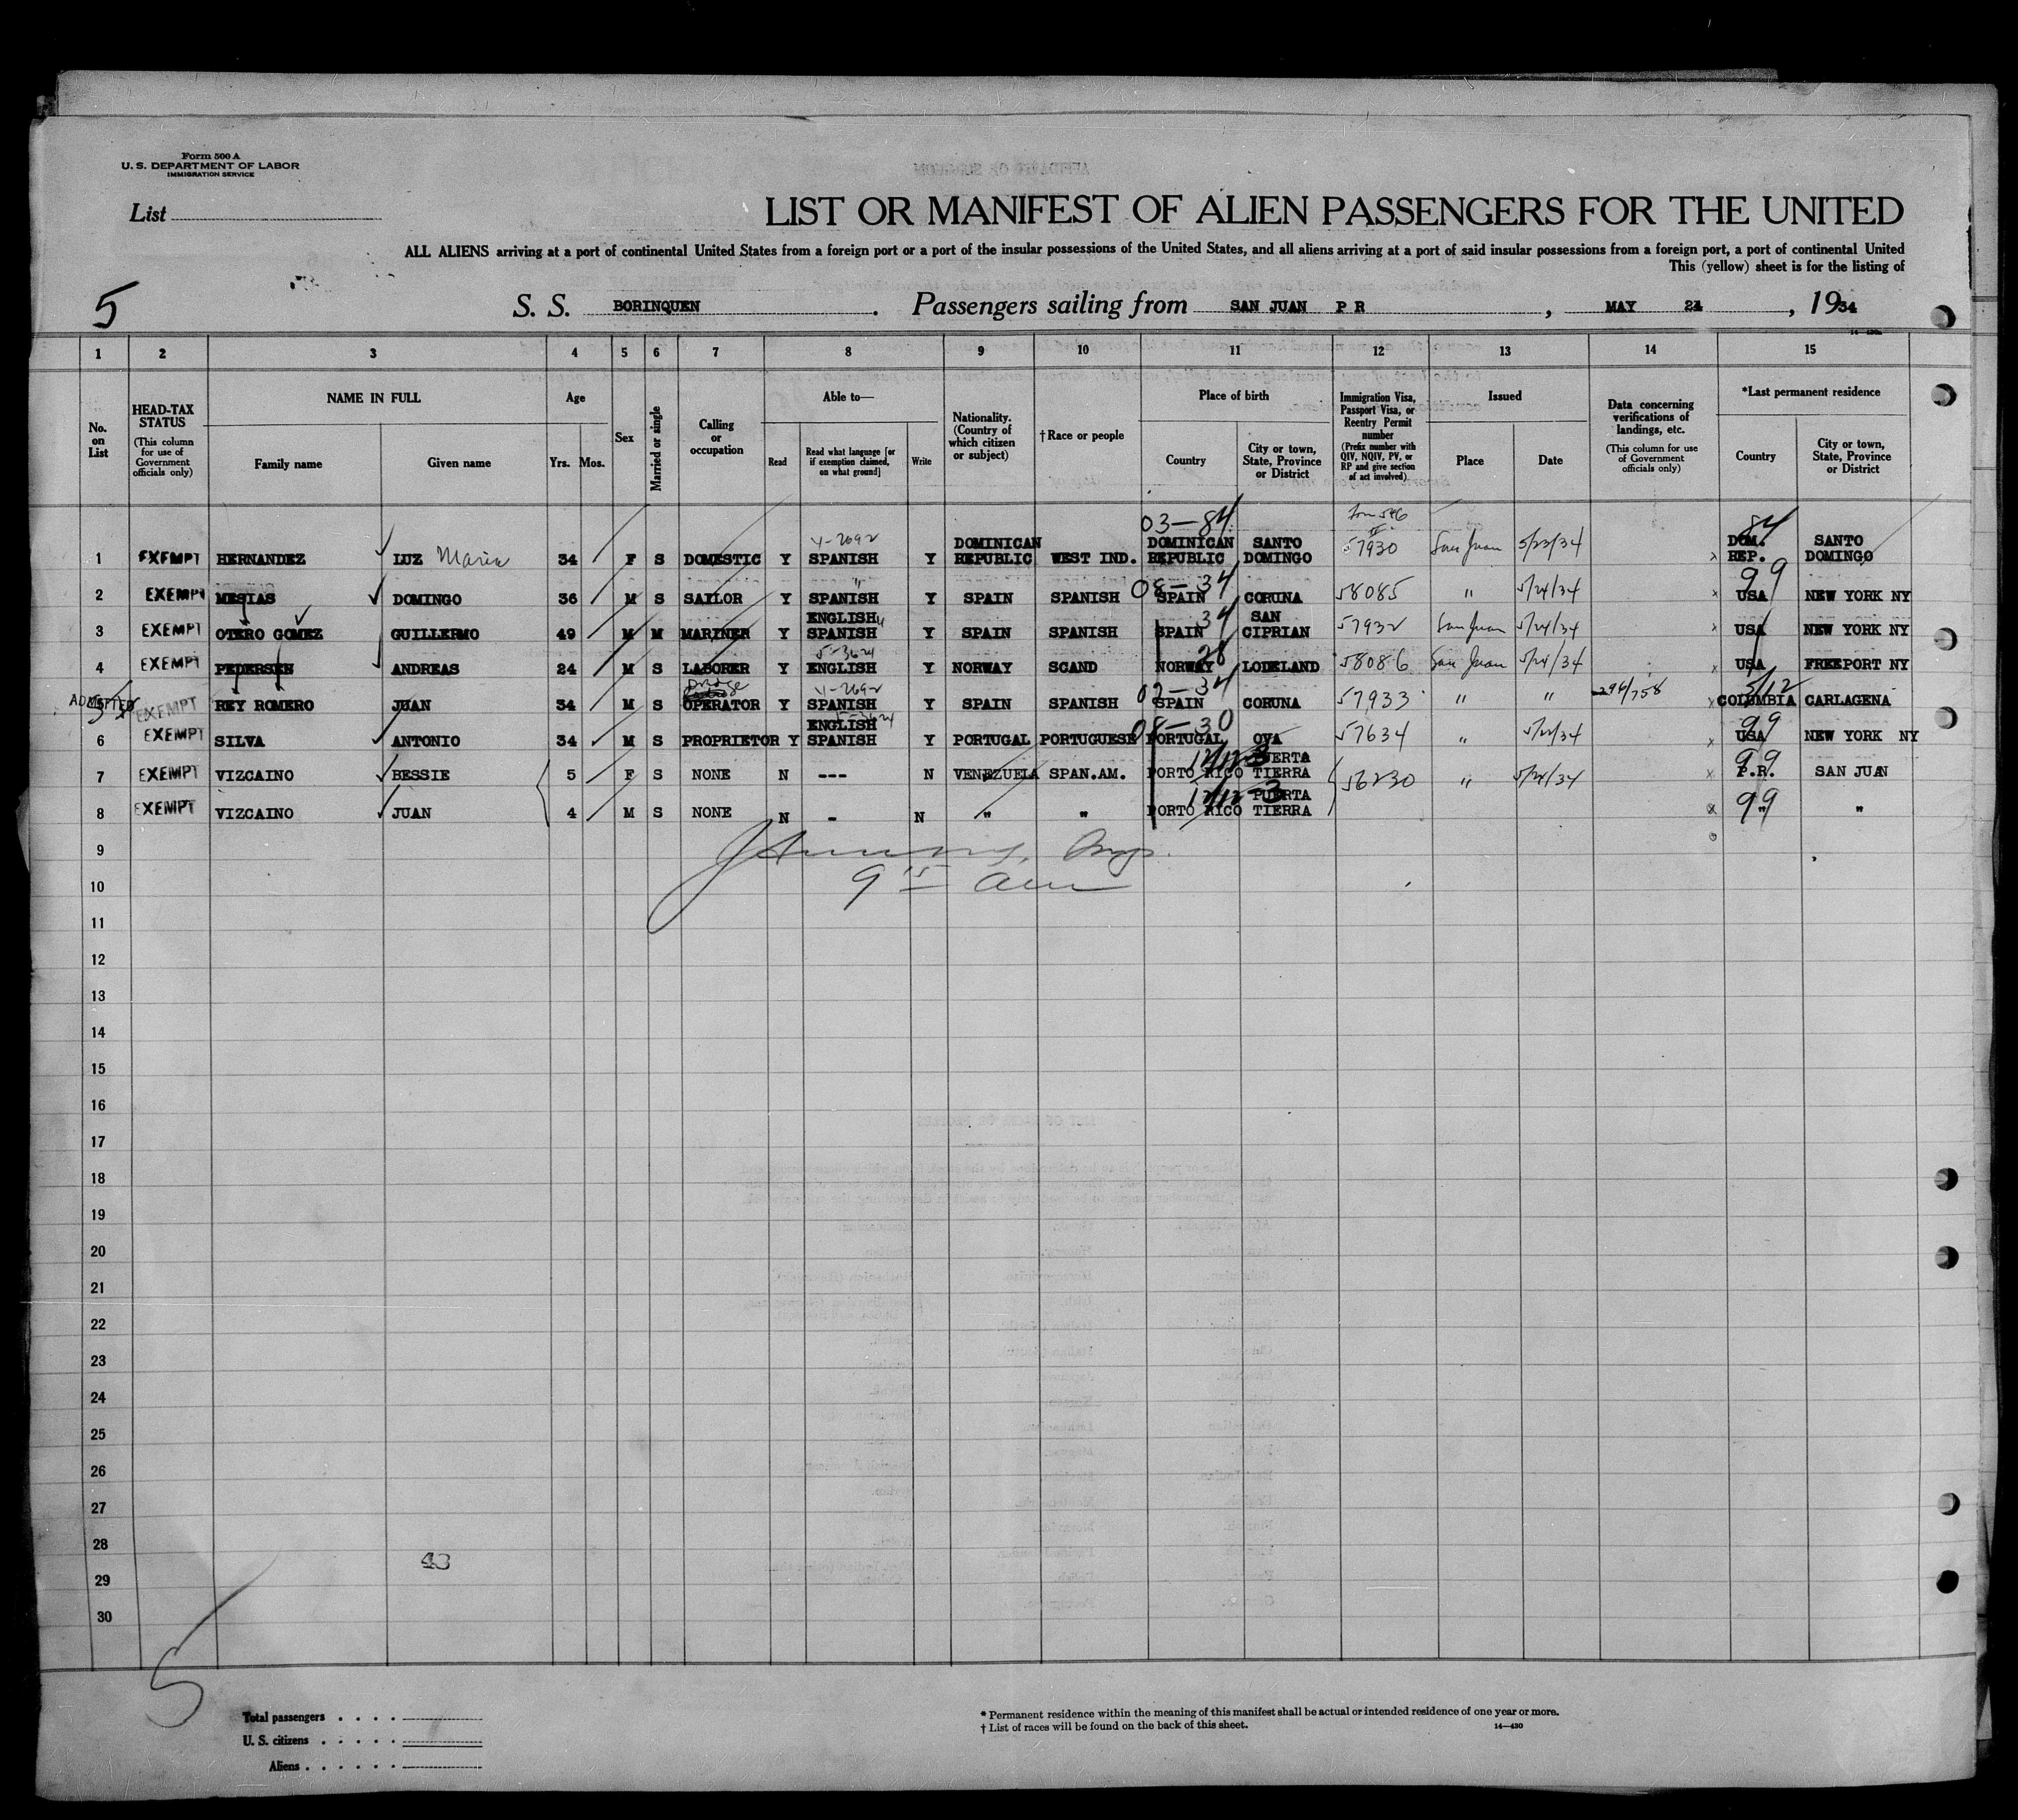 Form 500 A
U. S. DEPARTMENT OF LABOR
IMMIGRATION SERVICE
List
LIST OR MANIFEST OF ALIEN PASSENGERS FOR THE UNITED
ALL ALIENS arriving at a port of continental United States from a foreign port or a port of the insular possessions of the United States, and all aliens arriving at a port of said insular possessions from a foreign port, a port of continental United
This (yellow) sheet is for the listing of
5 S. S. BORINQUEN . Passengers sailing from SAN JUAN P R , MAY 24 , 1934
1 2 3 4 5 6 7 8 9 10 11 12 13 14 15
No. on List
HEAD-TAX STATUS (This column for use of Government officials only)
NAME IN FULL
Family name Given name
Age
Yrs. Mos.
Sex
Married or single
Calling or occupation
Able to—
Read Read what language [or if exemption claimed, on what ground] Write
Nationality. (Country of which citizen or subject)
† Race or people
Place of birth
Country City or town, State, Province or District
Immigration Visa, Passport Visa, or Reentry Permit number (Prefix number with QIV, NQIV, PV, or RP and give section of act involved)
Issued
Place Date
Data concerning verifications of landings, etc. (This column for use of Government officials only)
*Last permanent residence
Country City or town, State, Province or District
03-84 84
1 EXEMPT HERNANDEZ LUZ Maria 34 F S DOMESTIC Y SPANISH Y DOMINICAN REPUBLIC WEST IND. DOMINICAN REPUBLIC SANTO DOMINGO 57930 San Juan 5/23/34 DOM. REP. SANTO DOMINGO
2 EXEMPT MESIAS DOMINGO 36 M S SAILOR Y SPANISH Y SPAIN SPANISH 08-34 SPAIN CORUNA 58085 " 5/24/34 99 USA NEW YORK NY
3 EXEMPT OTERO GOMEZ GUILLERMO 49 M M MARINER Y ENGLISH SPANISH Y SPAIN SPANISH 34 SPAIN SAN CIPRIAN 57932 San Juan 5/24/34 USA NEW YORK NY
4 EXEMPT PEDERSEN ANDREAS 24 M S LABORER Y ENGLISH Y NORWAY SCAND NORWAY LODELAND 58086 San Juan 5/24/34 USA FREEPORT NY
ADMITTED
5 EXEMPT REY ROMERO JUAN 34 M S OPERATOR Y SPANISH Y SPAIN SPANISH SPAIN CORUNA 57933 " " 296/758 COLUMBIA CARLAGENA
6 EXEMPT SILVA ANTONIO 34 M S PROPRIETOR Y ENGLISH SPANISH Y PORTUGAL PORTUGUESE PORTUGAL OVA 57634 " 5/22/34 99 USA NEW YORK NY
7 EXEMPT VIZCAINO BESSIE 5 F S NONE N --- N VENEZUELA SPAN.AM. PORTO RICO PUERTA TIERRA 56230 " 5/24/34 99 P.R. SAN JUAN
8 EXEMPT VIZCAINO JUAN 4 M S NONE N - N " " PORTO RICO PUERTA TIERRA 99 " "
9
10
11
12
13
14
15
16
17
18
19
20
21
22
23
24
25
26
27
28
43
29
30
5
Total passengers
U. S. citizens
Aliens
* Permanent residence within the meaning of this manifest shall be actual or intended residence of one year or more.
† List of races will be found on the back of this sheet. 14—430